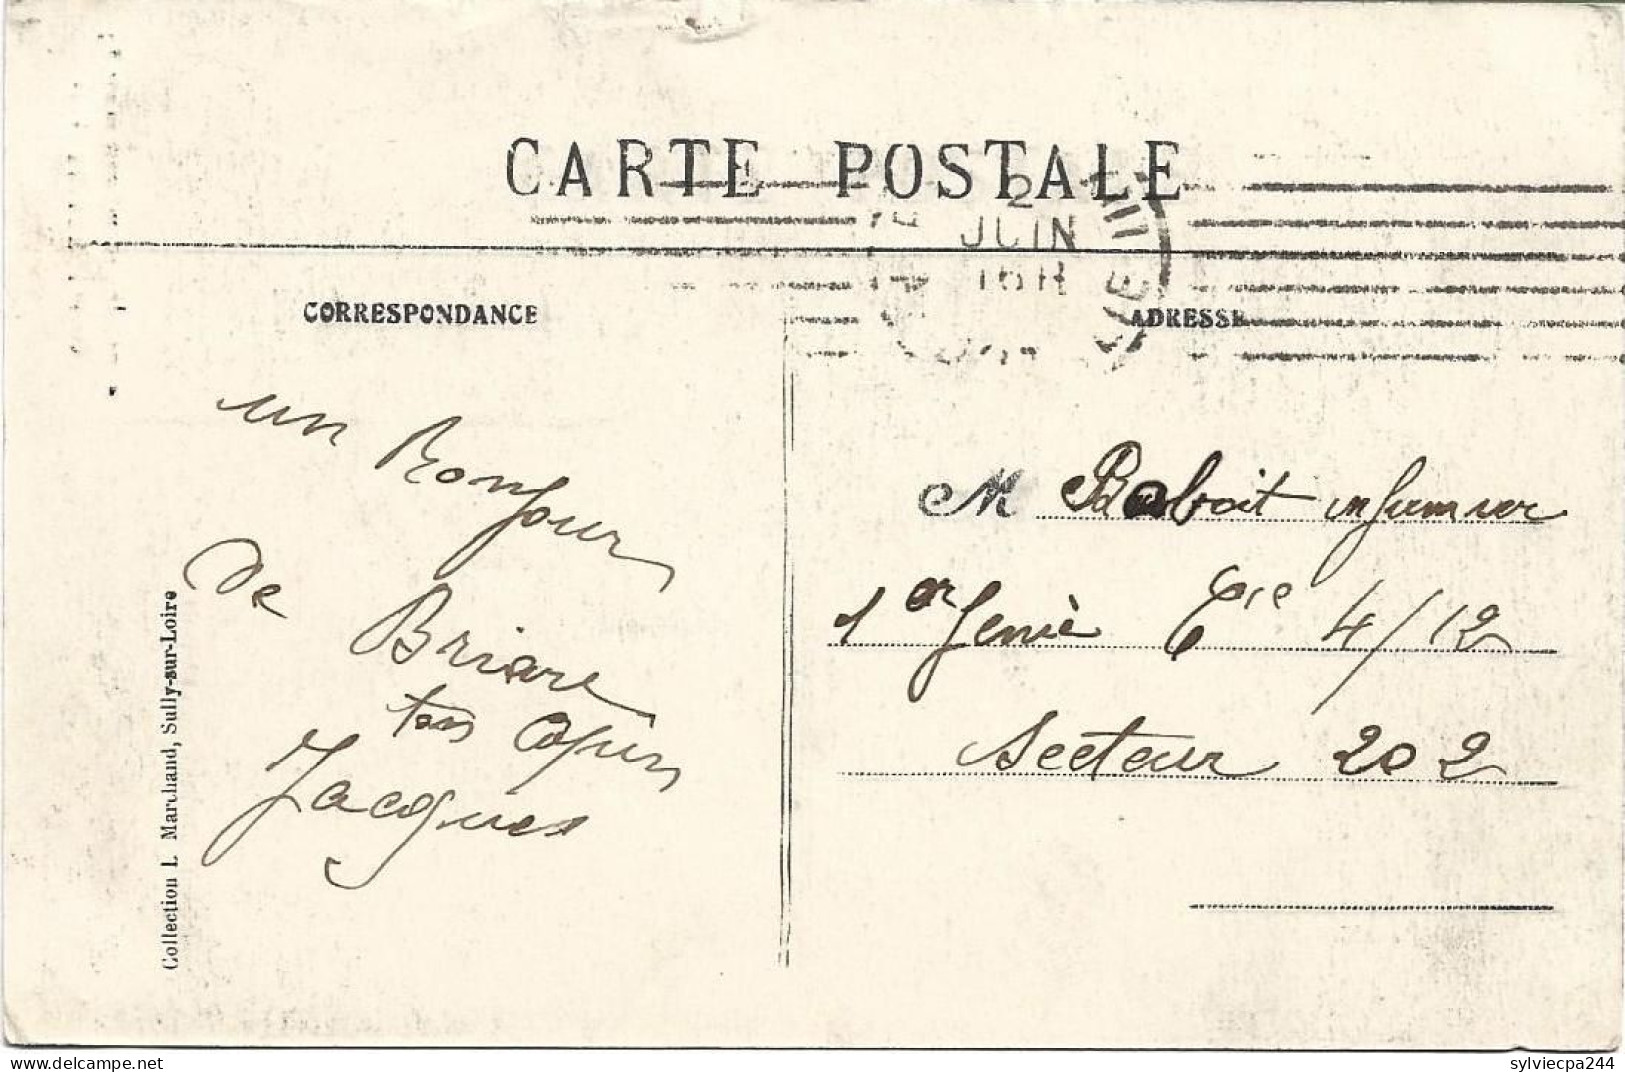 CARTE POSTALE
2
JUIN
16 H
CORRESPONDANCE
ADRESSE
un Bonjour
de Briare
ton copin
Jacques
M Baboit infirmier
1er Genie Cie 4/12
Secteur 202
Collection L Marchand, Sully-sur-Loire
delcampe.net
sylviecpa244